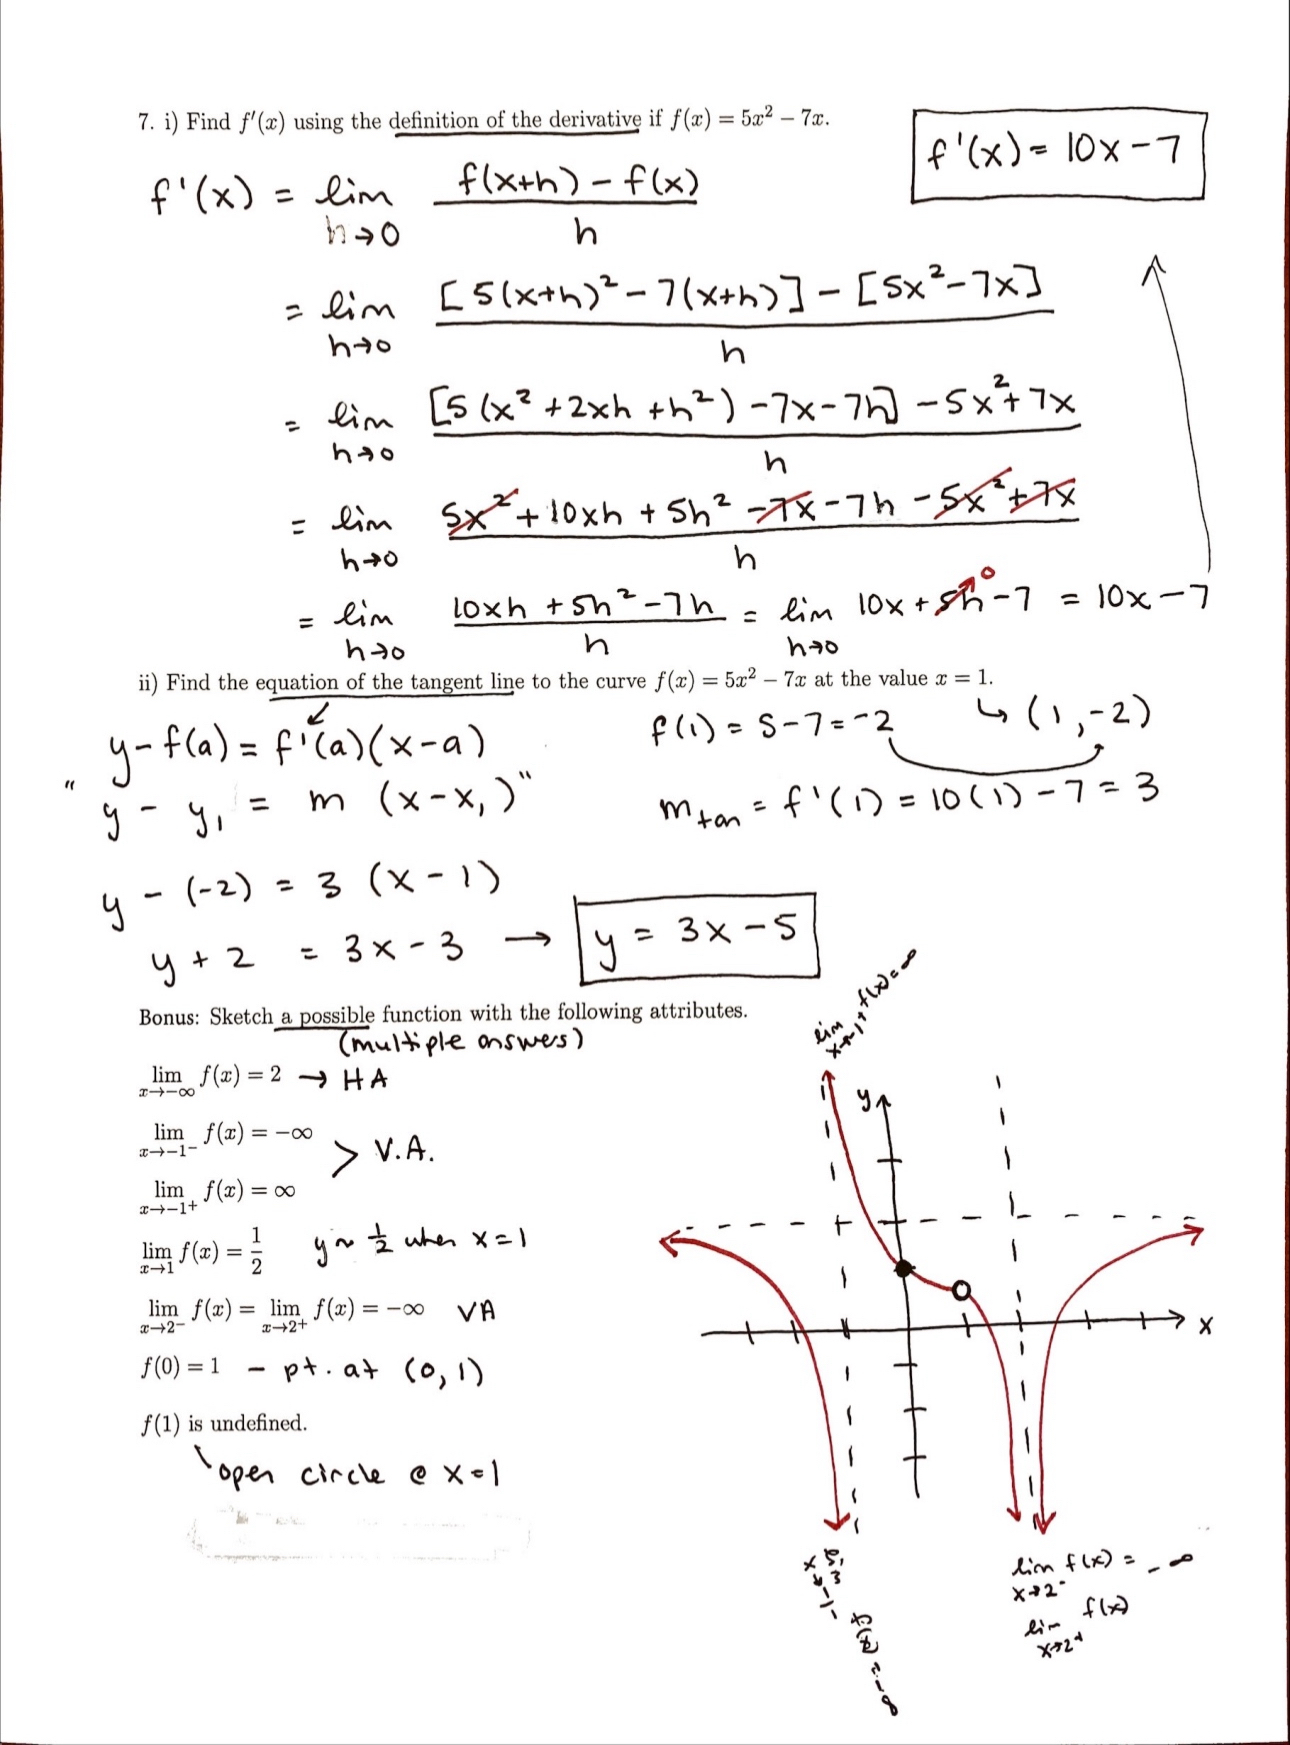 7. i) Find f′(x) using the definition of the derivative if f(x) = 5x² − 7x.
f'(x) = 10x − 7
f'(x) = lim h→0 f(x+h) − f(x) / h
= lim h→0 [5(x+h)² − 7(x+h)] − [5x² − 7x] / h
= lim h→0 [5(x² + 2xh + h²) − 7x − 7h] − 5x² + 7x / h
= lim h→0 5x² + 10xh + 5h² − 7x − 7h − 5x² + 7x / h
= lim h→0 10xh + 5h² − 7h / h = lim h→0 10x + 5h − 7 = 10x − 7
0
ii) Find the equation of the tangent line to the curve f(x) = 5x² − 7x at the value x = 1.
y − f(a) = f'(a)(x − a)
f(1) = 5 − 7 = −2 ↳ (1, −2)
"y − y₁ = m (x − x₁)"
m tan = f'(1) = 10(1) − 7 = 3
y − (−2) = 3 (x − 1)
y + 2 = 3x − 3 → y = 3x − 5
Bonus: Sketch a possible function with the following attributes.
(multiple answers)
lim x→−∞ f(x) = 2 → HA
lim x→−1⁻ f(x) = −∞
> V.A.
lim x→−1⁺ f(x) = ∞
lim x→1 f(x) = 1/2 y ~ 1/2 when x = 1
lim x→2⁻ f(x) = lim x→2⁺ f(x) = −∞ VA
f(0) = 1 − pt. at (0, 1)
f(1) is undefined.
open circle @ x = 1
lim x→−1⁺ f(x) = ∞
y
x
lim x→−1⁻ f(x) = −∞
lim x→2⁻ f(x) = −∞
lim x→2⁺ f(x)